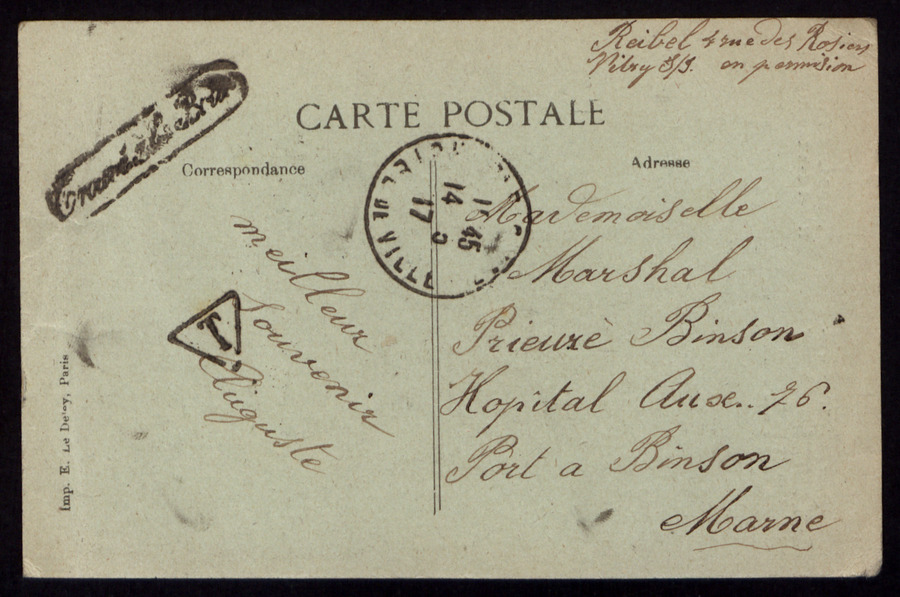 Reibel 4 rue des Rosiers
Vitry S/S. en permision
CARTE POSTALE
Correspondance
Adresse
15 45
14 5
17
VILLE
Mademoiselle
Marshal
Prieuré Binson
Hopital Aux.. 76.
Port a Binson
Marne
meilleur
Souvenir
Auguste
T
Imp. E. Le Deley, Paris